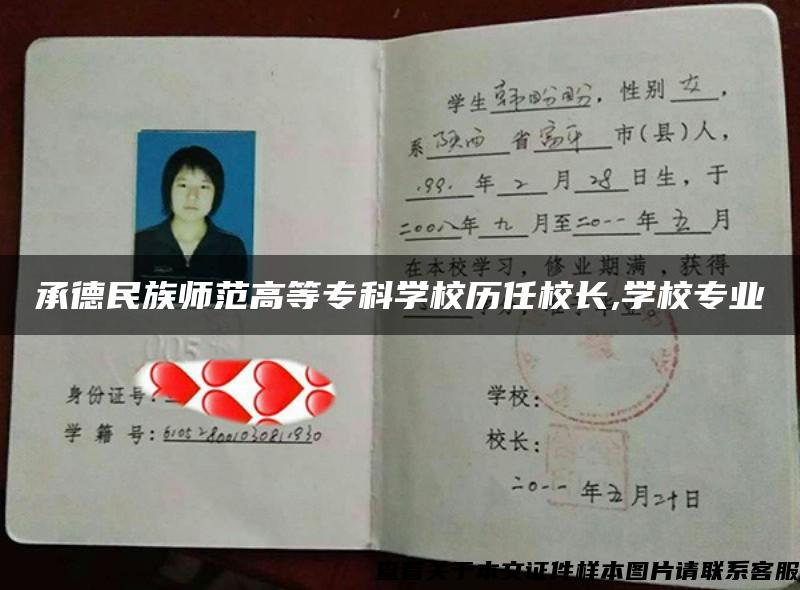 学生韩盼盼，性别女，
系陕西省富平市(县)人，
1991年2月28日生，于
二00八年九月至二0一一年五月
在本校学习，修业期满，获得
承德民族师范高等专科学校历任校长,学校专业
身份证号：
学籍号：
学校：
校长：
二0一一年五月二十日
查看关于本文证件样本图片请联系客服